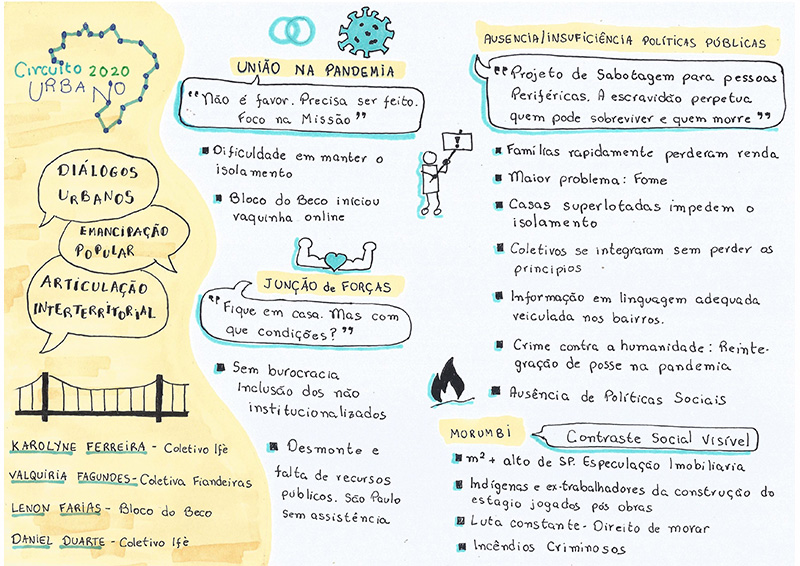 Circuito 2020
URBANO
DIÁLOGOS
URBANOS
EMANCIPAÇÃO
POPULAR
ARTICULAÇÃO
INTERTERRITORIAL
KAROLYNE FERREIRA - Coletivo Ifè
VALQUÍRIA FAGUNDES - Coletiva Fiandeiras
LENON FARIAS - Bloco do Beco
DANIEL DUARTE - Coletivo Ifè
UNIÃO NA PANDEMIA
"Não é favor. Precisa ser feito.
Foco na Missão"
Dificuldade em manter o
isolamento
Bloco do Beco iniciou
vaquinha online
JUNÇÃO de FORÇAS
"Fique em casa. Mas com
que condições?"
Sem burocracia
Inclusão dos não
institucionalizados
Desmonte e
falta de recursos
públicos. São Paulo
sem assistência
AUSENCIA/INSUFICIÊNCIA POLÍTICAS PÚBLICAS
"Projeto de Sabotagem para pessoas
Periféricas. A escravidão perpetua
quem pode sobreviver e quem morre"
!
Famílias rapidamente perderam renda
Maior problema: Fome
Casas superlotadas impedem o
isolamento
Coletivos se integraram sem perder os
principios
Informação em linguagem adequada
veiculada nos bairros.
Crime contra a humanidade: Reinte-
gração de posse na pandemia
Ausência de Políticas Sociais
MORUMBI
Contraste Social Visível
m² + alto de SP. Especulação Imobiliaria
Indígenas e ex-trabalhadores da construção do
estagio jogados pós obras
Luta constante - Direito de morar
Incêndios Criminosos